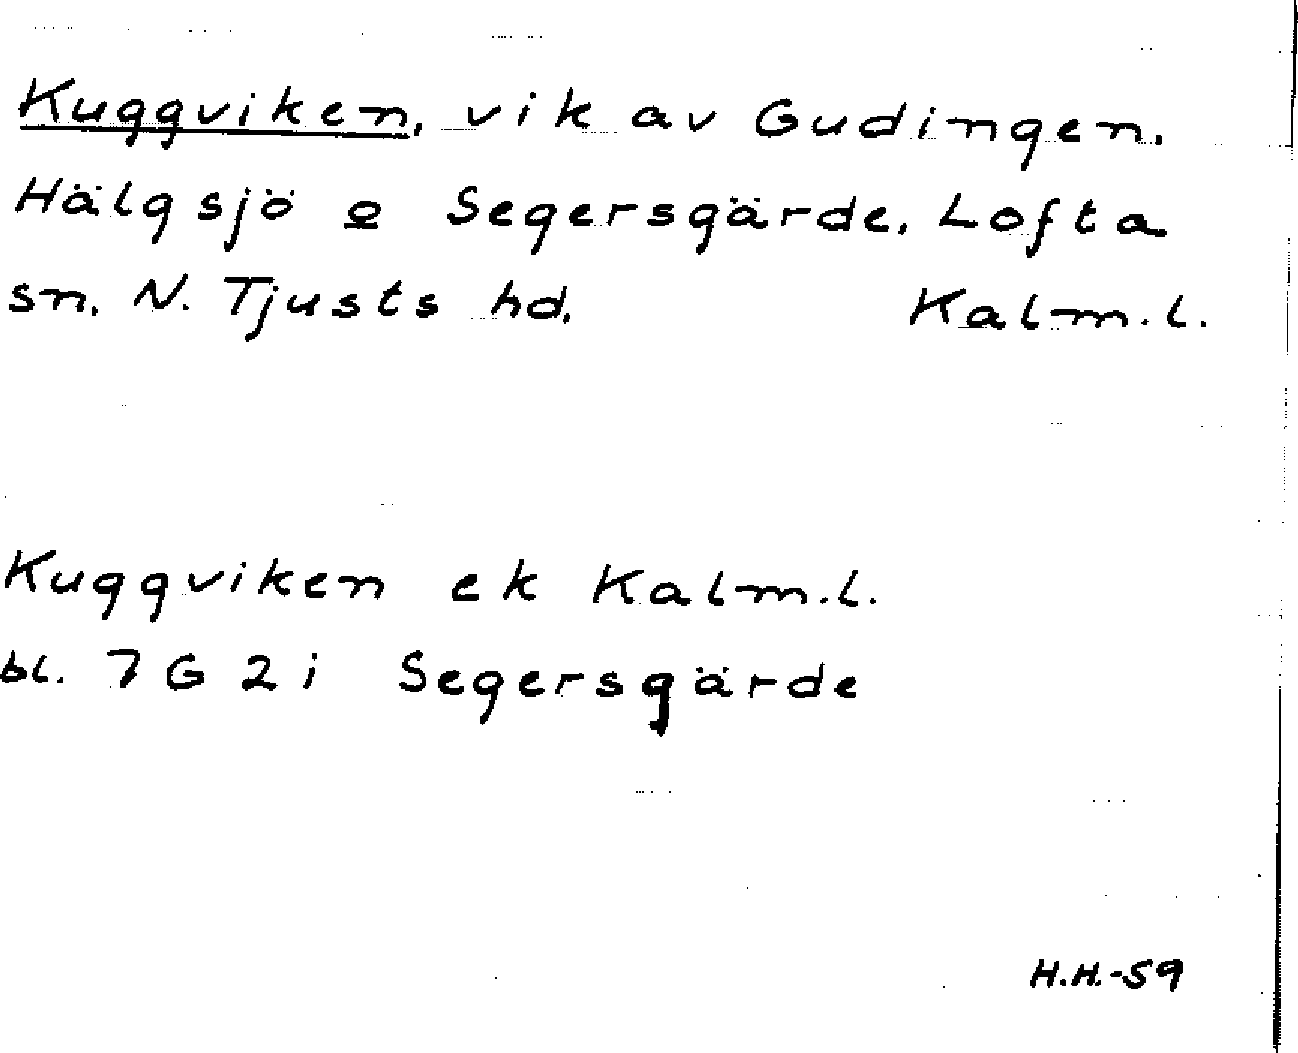 Kuggviken, vik av Gudingen,
Hälgsjö o Segersgärde, Lofta
sn, N. Tjusts hd, Kalm.l.
Kuggviken ek Kalm.l.
bl. 7 G 2 i Segersgärde
H.H.-59